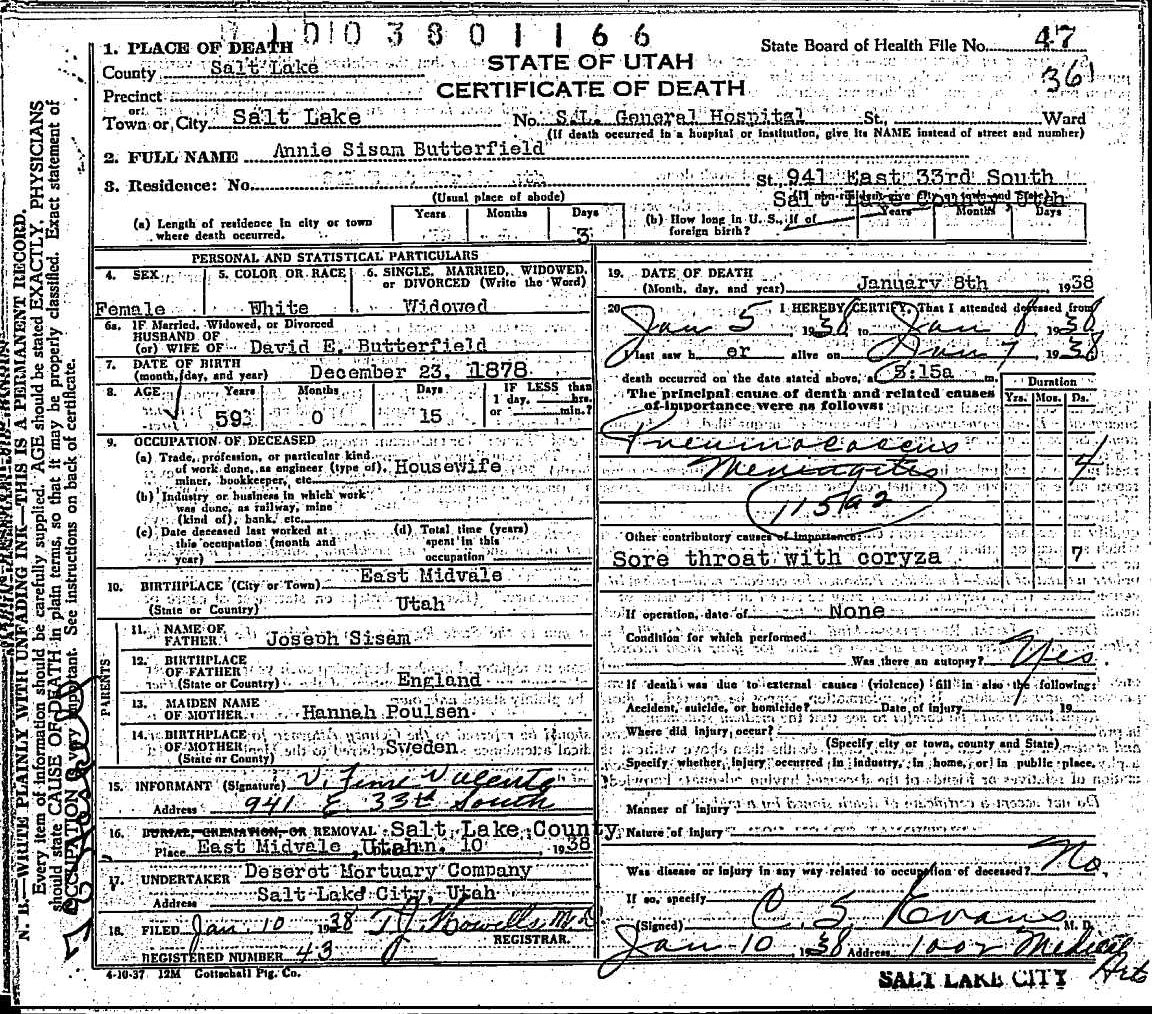 1 0 0 3 8 0 1 1 6 6
1. PLACE OF DEATH
County Salt Lake
Precinct
or
Town or City Salt Lake
STATE OF UTAH
CERTIFICATE OF DEATH
State Board of Health File No. 47
36
No. S.L. General Hospital St., Ward
(If death occurred in a hospital or institution, give its NAME instead of street and number)
2. FULL NAME Annie Sisam Butterfield
3. Residence: No. St. 941 East 33rd South
(Usual place of abode)
Salt Lake County, Utah
(a) Length of residence in city or town
where death occurred.
Years Months Days
3
(b) How long in U. S., if of
foreign birth?
Years Months Days
PERSONAL AND STATISTICAL PARTICULARS
4. SEX
Female
5. COLOR OR RACE
White
6. SINGLE, MARRIED, WIDOWED,
or DIVORCED (Write the Word)
Widowed
6a. IF Married, Widowed, or Divorced
HUSBAND OF
(or) WIFE OF David E. Butterfield
7. DATE OF BIRTH
(month, day, and year) December 23, 1878
8. AGE Years Months Days
IF LESS than
1 day, hrs.
or min.?
59 0 15
9. OCCUPATION OF DECEASED
(a) Trade, profession, or particular kind
of work done, as engineer (type of), Housewife
miner, bookkeeper, etc.
(b) Industry or business in which work
was done, as railway, mine
(kind of), bank, etc.
(c) Date deceased last worked at
this occupation (month and
year)
(d) Total time (years)
spent in this
occupation
10. BIRTHPLACE (City or Town) East Midvale
(State or Country) Utah
PARENTS
11. NAME OF
FATHER Joseph Sisam
12. BIRTHPLACE
OF FATHER
(State or Country) England
13. MAIDEN NAME
OF MOTHER Hannah Poulsen
14. BIRTHPLACE
OF MOTHER Sweden
(State or Country)
15. INFORMANT (Signature)
Address 941 E. 33th South
16. BURIAL, CREMATION, OR REMOVAL Salt Lake County
Place East Midvale, Utah n. 10, 1938
17. UNDERTAKER Deseret Mortuary Company
Address Salt Lake City, Utah
18. FILED Jan. 10 1938 T.J. Howells M.D.
REGISTRAR.
REGISTERED NUMBER 43
4-10-37 12M Gottschall Ptg. Co.
19. DATE OF DEATH
(Month, day, and year) January 8th 1938
20. I HEREBY CERTIFY, That I attended deceased from
Jan 5, 1938 to Jan 8, 1938
I last saw her alive on Jan 7, 1938
death occurred on the date stated above, at 5:15a m.
The principal cause of death and related causes
of importance were as follows:
Duration
Yrs. Mos. Ds.
Pneumococcus
Meningitis 4
115a2
Other contributory causes of importance:
Sore throat with coryza 7
If operation, date of None
Condition for which performed
Was there an autopsy? Yes
If death was due to external causes (violence) fill in also the following:
Accident, suicide, or homicide? Date of injury 19
Where did injury occur?
(Specify city or town, county and State)
Specify whether injury occurred in industry, in home, or in public place.
Manner of injury
Nature of injury
Was disease or injury in any way related to occupation of deceased? No
If so, specify
(Signed) C. S. Evans M. D.
Jan 10 1938 Address 1002 Medical
Arts
SALT LAKE CITY
N. B.—WRITE PLAINLY WITH UNFADING INK—THIS IS A PERMANENT RECORD.
Every item of information should be carefully supplied. AGE should be stated EXACTLY. PHYSICIANS
should state CAUSE OF DEATH in plain terms, so that it may be properly classified. Exact statement of
OCCUPATION is very important. See instructions on back of certificate.